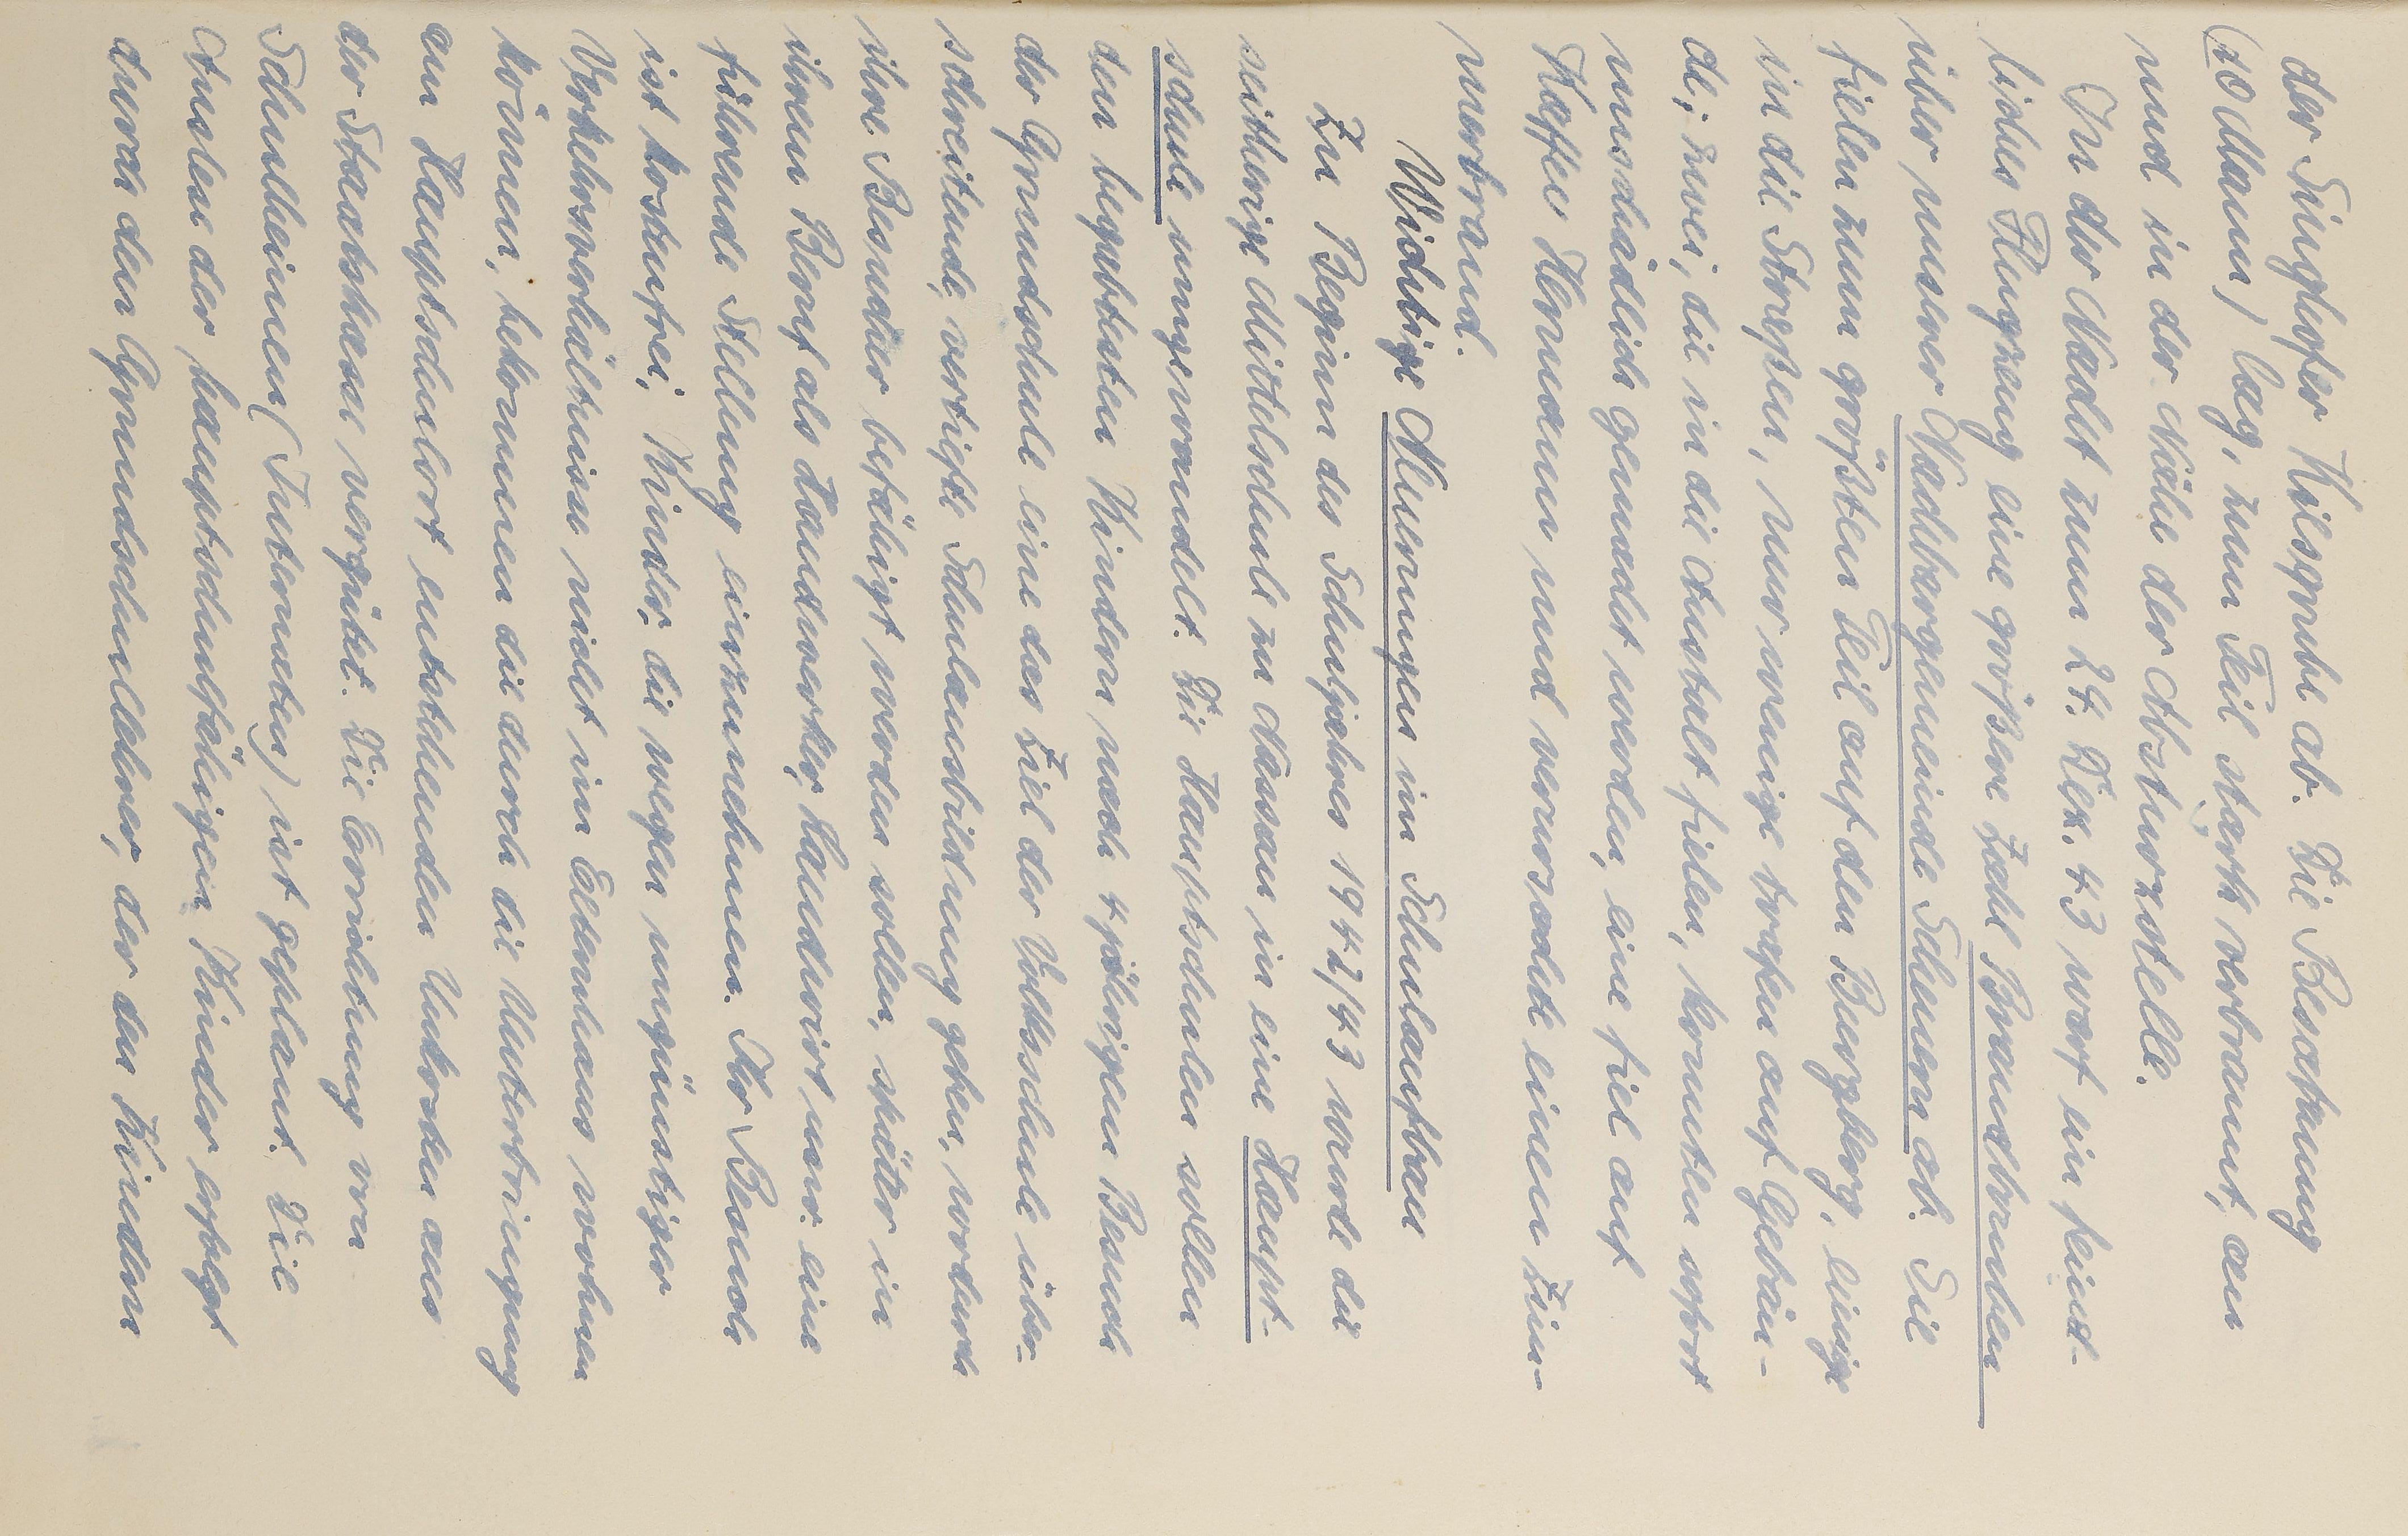 der Singhofer Kilsgrube ab. Die Besatzung
(10 Mann) lag, zum Teil stark verbrannt, an
und in der Nähe der Absturzstelle.
In der Nacht zum 24. Dez. 43 warf ein feind-
liches Flugzeug eine größere Zahl Brandbomben
über unserer Nachbargemeinde Scheuern ab. Sie
fielen zum größten Teil auf den Burgberg, einige
in die Straßen, nur wenige trafen auf Gebäu-
de; zwei, die in die Anstalt fielen, konnten sofort
unschädlich gemacht werden, eine fiel auf
Hermann und verursachte einen Zim-
merbrand.
Wichtige Neuerungen im Schulaufbau
Zu Beginn des Schuljahres 1942/43 wurde die
seitherige Mittelschule zu Nassau in eine Haupt-
schule umgewandelt. Die Hauptschulen sollen
den begabtesten Kindern nach 4 jährigem Besuch
der Grundschule eine das Ziel der Volksschule über-
schreitende, vertiefte Schulausbildung geben, wodurch
ihre Besucher befähigt werden sollen, später in
ihrem Beruf als Handwerker, Landwirt usw. eine
führende Stellung einzunehmen. Der Besuch
ist kostenfrei. Kinder, die wegen ungünstiger
Verkehrsverhältnisse nicht im Elternhaus wohnen
können, bekommen die durch die Unterbringung
am Hauptschulort entstehenden Unkosten aus
der Staatskasse vergütet. Die Errichtung von
Schulheimen (Internaten) ist geplant. Die
Auslese der hauptschulfähigen Kinder erfolgt
durch den Grundschullehrer, der den Kindern